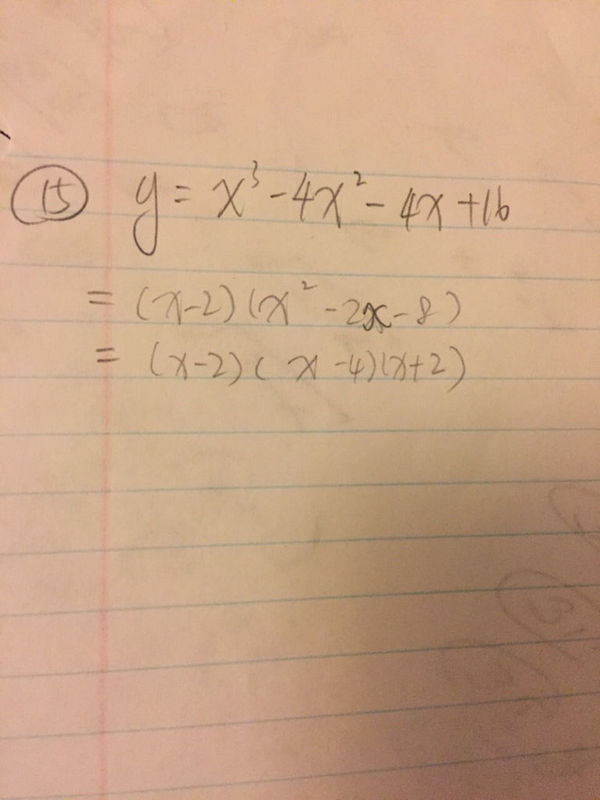 (15) y = x³ - 4x² - 4x + 16
= (x-2)(x² - 2x - 8)
= (x-2)(x-4)(x+2)